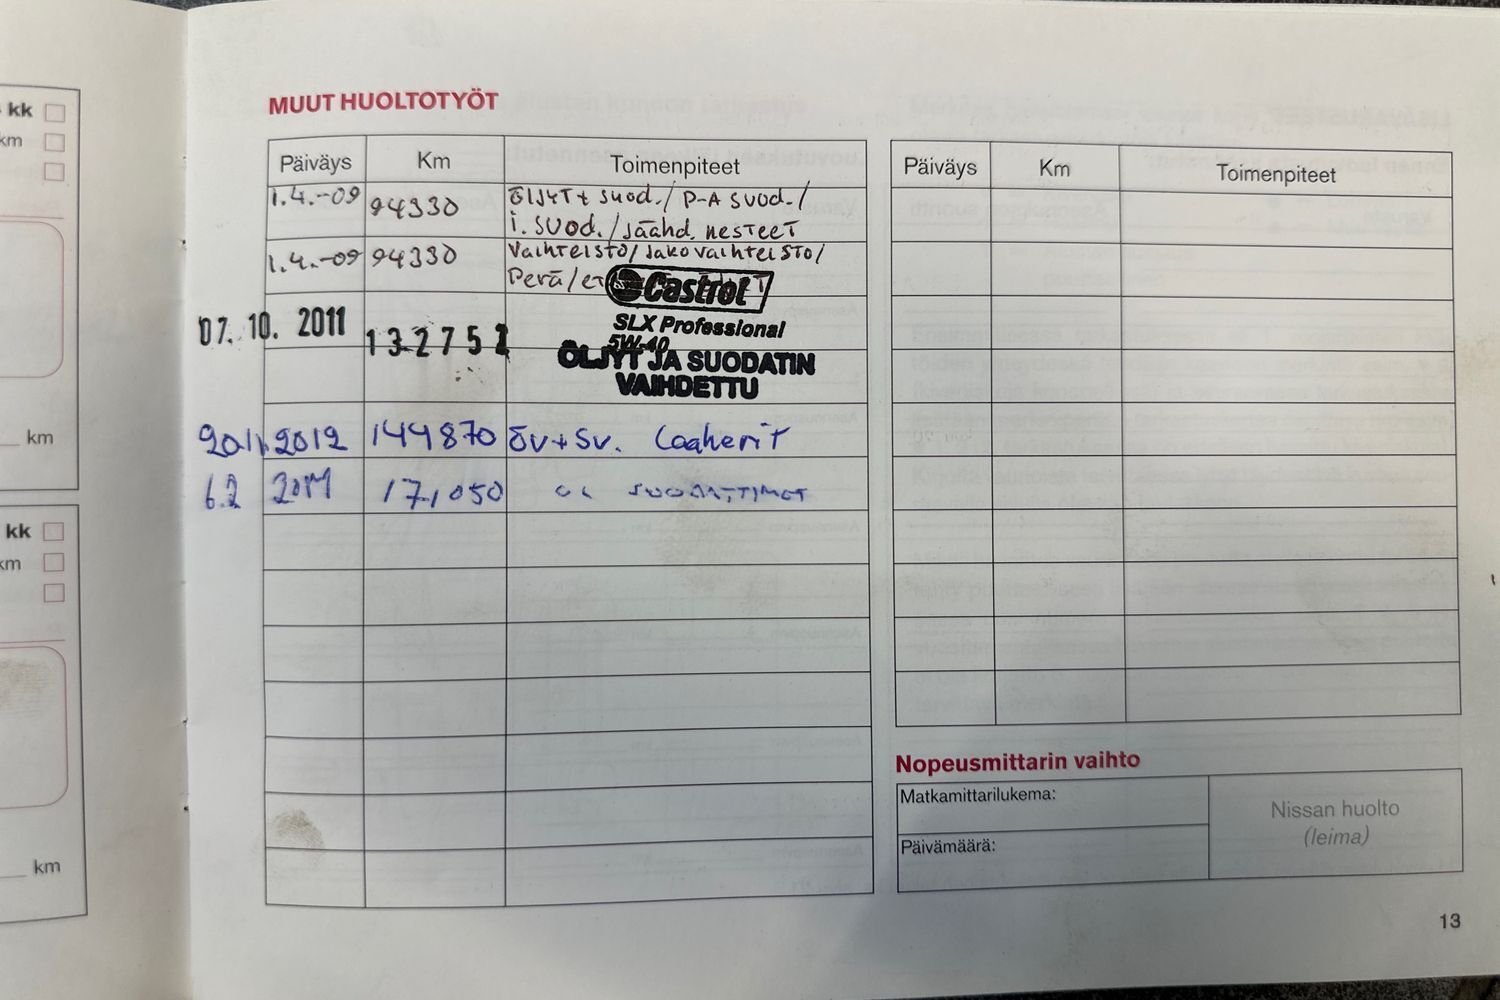 kk
km
km
kk
km
km
MUUT HUOLTOTYÖT
Päiväys Km Toimenpiteet
1.4.-09 94330 ÖLJYT+ SUOD./ P-A SUOD./
i. SUOD./ Jäähd. nesteet
1.4.-09 94330 Vaihteisto/Jakovaihteisto/
Perä/
Castrol
SLX Professional
5W-40
07.10.2011 132752 ÖLJYT JA SUODATIN
VAIHDETTU
2012 144870 Öv+Sv. Laakerit
6.2 171050 SUODATTIMET
Päiväys Km Toimenpiteet
Nopeusmittarin vaihto
Matkamittarilukema:
Päivämäärä:
Nissan huolto
(leima)
13